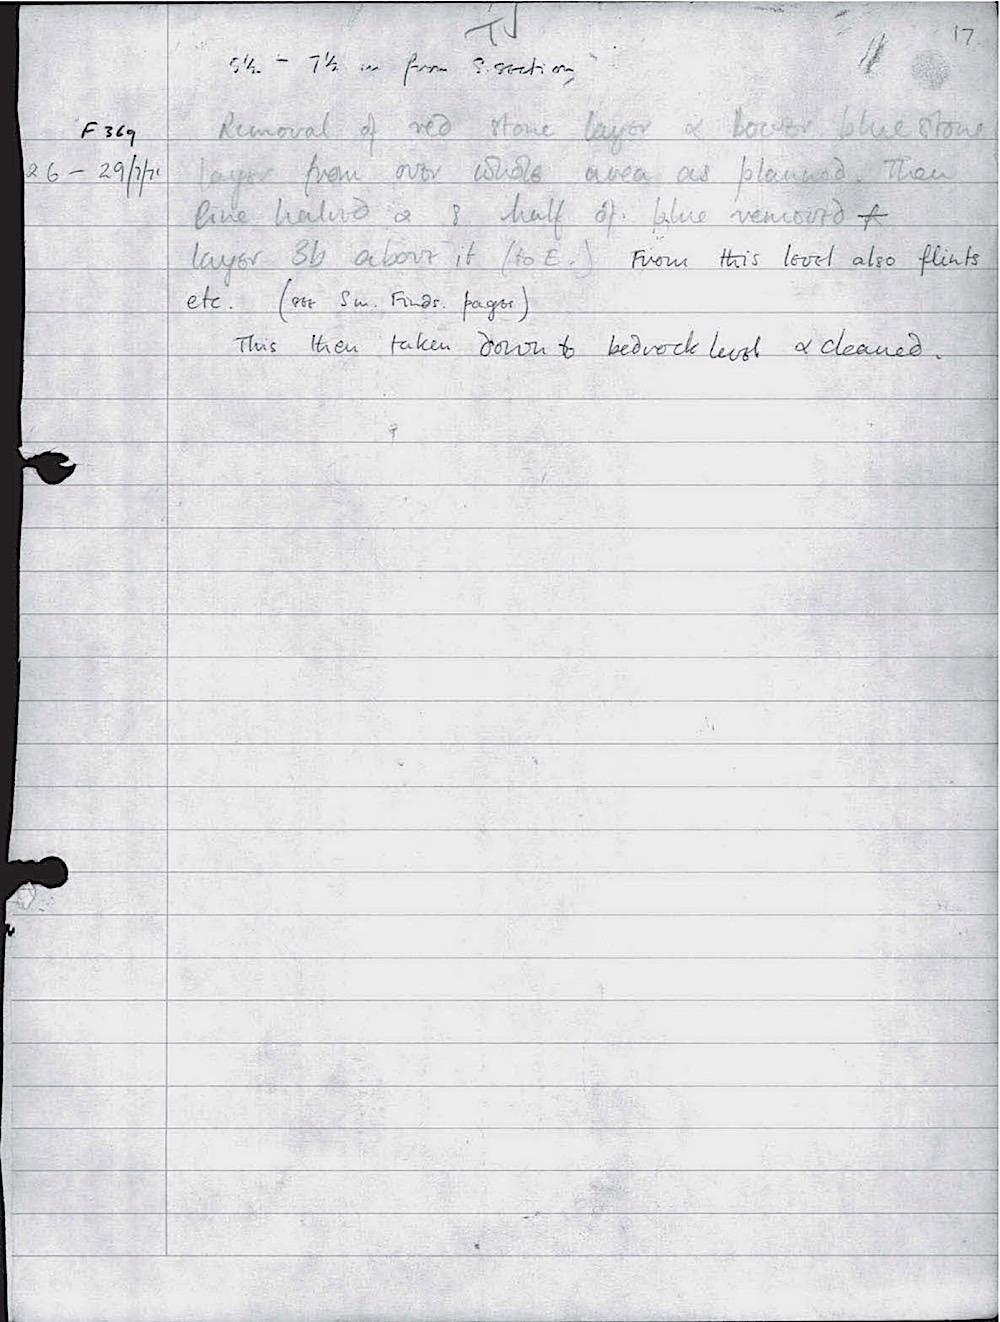 TJ 17
5½ - 7½ m from S. section
F 369 Removal of red stone layer & lower blue stone
26 - 29/7/71 layer from over whole area as planned. Then
line halved & S half of blue removed +
layer 3b above it (to E.) From this level also flints
etc. (see Sm. Finds. pages)
This then taken down to bedrock level & cleaned.